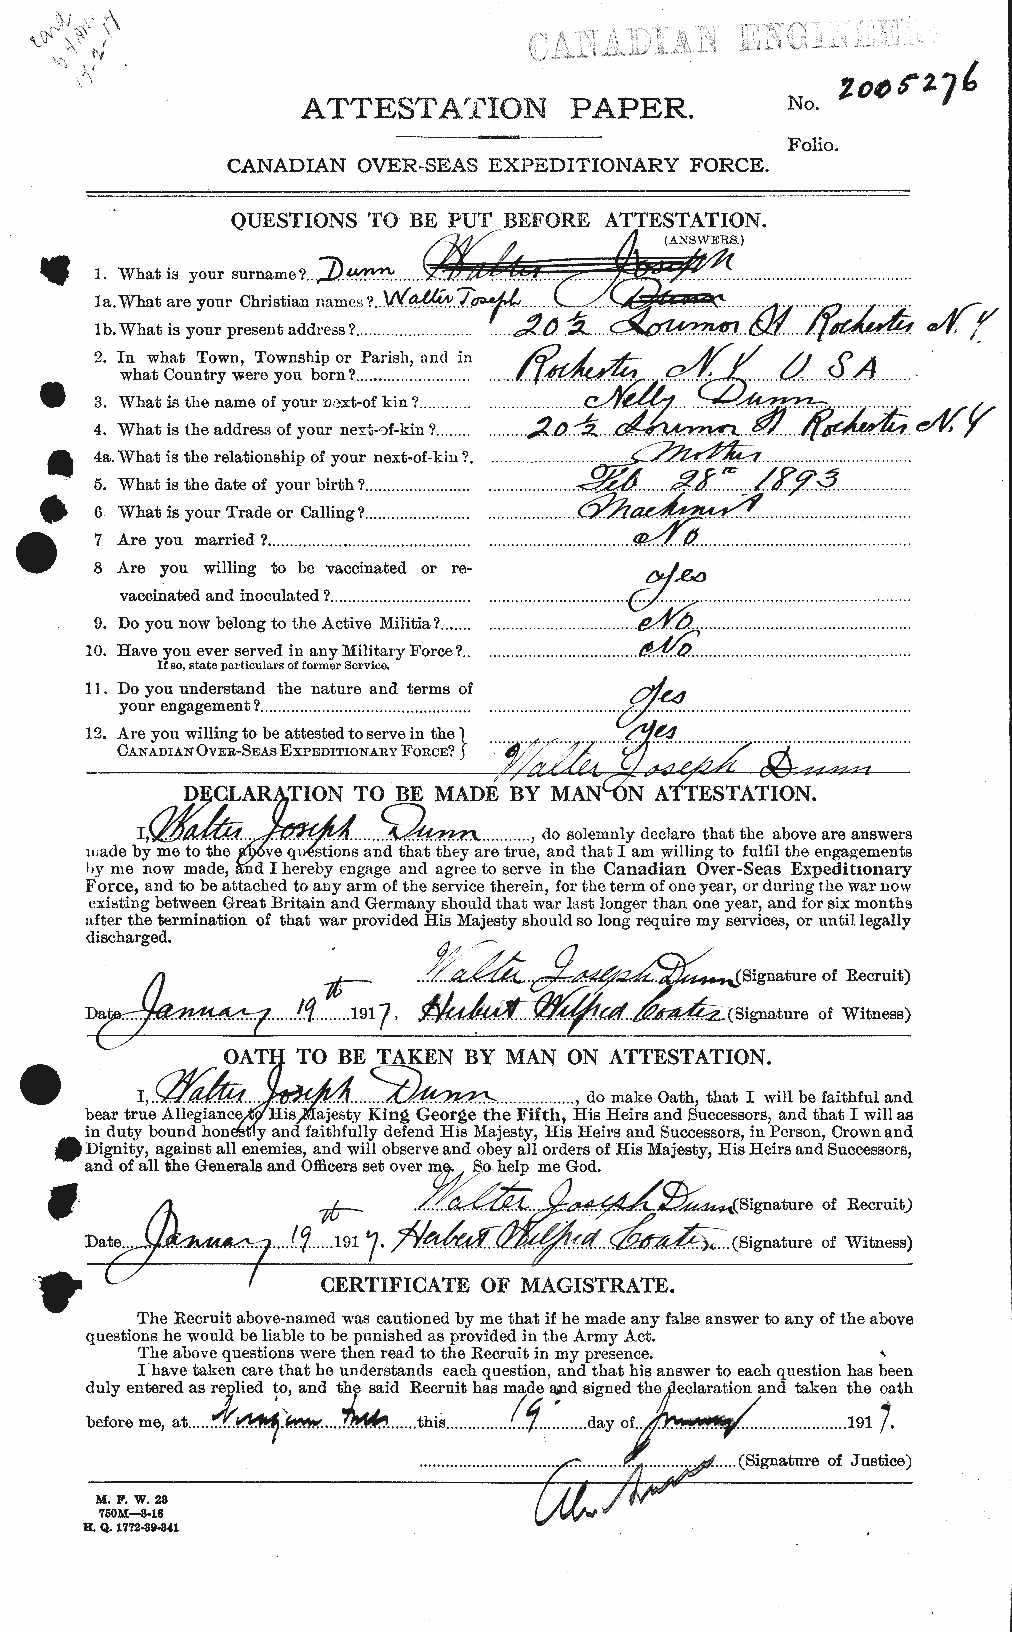 CANADIAN ENGINEERS
No. 2005276
ATTESTATION PAPER.
Folio.
CANADIAN OVER-SEAS EXPEDITIONARY FORCE.
QUESTIONS TO BE PUT BEFORE ATTESTATION.
(ANSWERS.)
1. What is your surname? Dunn Walter Joseph
1a. What are your Christian names? Walter Joseph Dunn
1b. What is your present address? 20½ St Rochester N.Y
2. In what Town, Township or Parish, and in
what Country were you born? Rochester N.Y U S A
3. What is the name of your next-of kin? Nelly Dunn
4. What is the address of your next-of-kin? 20½ St Rochester N.Y
4a. What is the relationship of your next-of-kin? Mother
5. What is the date of your birth? Feb 28th 1893
6 What is your Trade or Calling? Machinist
7 Are you married? No
8 Are you willing to be vaccinated or re-
vaccinated and inoculated? Yes
9. Do you now belong to the Active Militia? No
10. Have you ever served in any Military Force? No
If so, state particulars of former Service.
11. Do you understand the nature and terms of
your engagement? Yes
12. Are you willing to be attested to serve in the
CANADIAN OVER-SEAS EXPEDITIONARY FORCE? Yes
Walter Joseph Dunn
DECLARATION TO BE MADE BY MAN ON ATTESTATION.
I, Walter Joseph Dunn, do solemnly declare that the above are answers
made by me to the above questions and that they are true, and that I am willing to fulfil the engagements
by me now made, and I hereby engage and agree to serve in the Canadian Over-Seas Expeditionary
Force, and to be attached to any arm of the service therein, for the term of one year, or during the war now
existing between Great Britain and Germany should that war last longer than one year, and for six months
after the termination of that war provided His Majesty should so long require my services, or until legally
discharged.
Walter Joseph Dunn (Signature of Recruit)
Date January 19th 1917. Herbert Wilfred Coates (Signature of Witness)
OATH TO BE TAKEN BY MAN ON ATTESTATION.
I, Walter Joseph Dunn, do make Oath, that I will be faithful and
bear true Allegiance to His Majesty King George the Fifth, His Heirs and Successors, and that I will as
in duty bound honestly and faithfully defend His Majesty, His Heirs and Successors, in Person, Crown and
Dignity, against all enemies, and will observe and obey all orders of His Majesty, His Heirs and Successors,
and of all the Generals and Officers set over me. So help me God.
Walter Joseph Dunn (Signature of Recruit)
Date January 19th 1917. Herbert Wilfred Coates (Signature of Witness)
CERTIFICATE OF MAGISTRATE.
The Recruit above-named was cautioned by me that if he made any false answer to any of the above
questions he would be liable to be punished as provided in the Army Act.
The above questions were then read to the Recruit in my presence.
I have taken care that he understands each question, and that his answer to each question has been
duly entered as replied to, and the said Recruit has made and signed the declaration and taken the oath
before me, at Niagara Falls this 19 day of January 1917.
(Signature of Justice)
M. F. W. 23
750M—8-16
H. Q. 1772-39-841